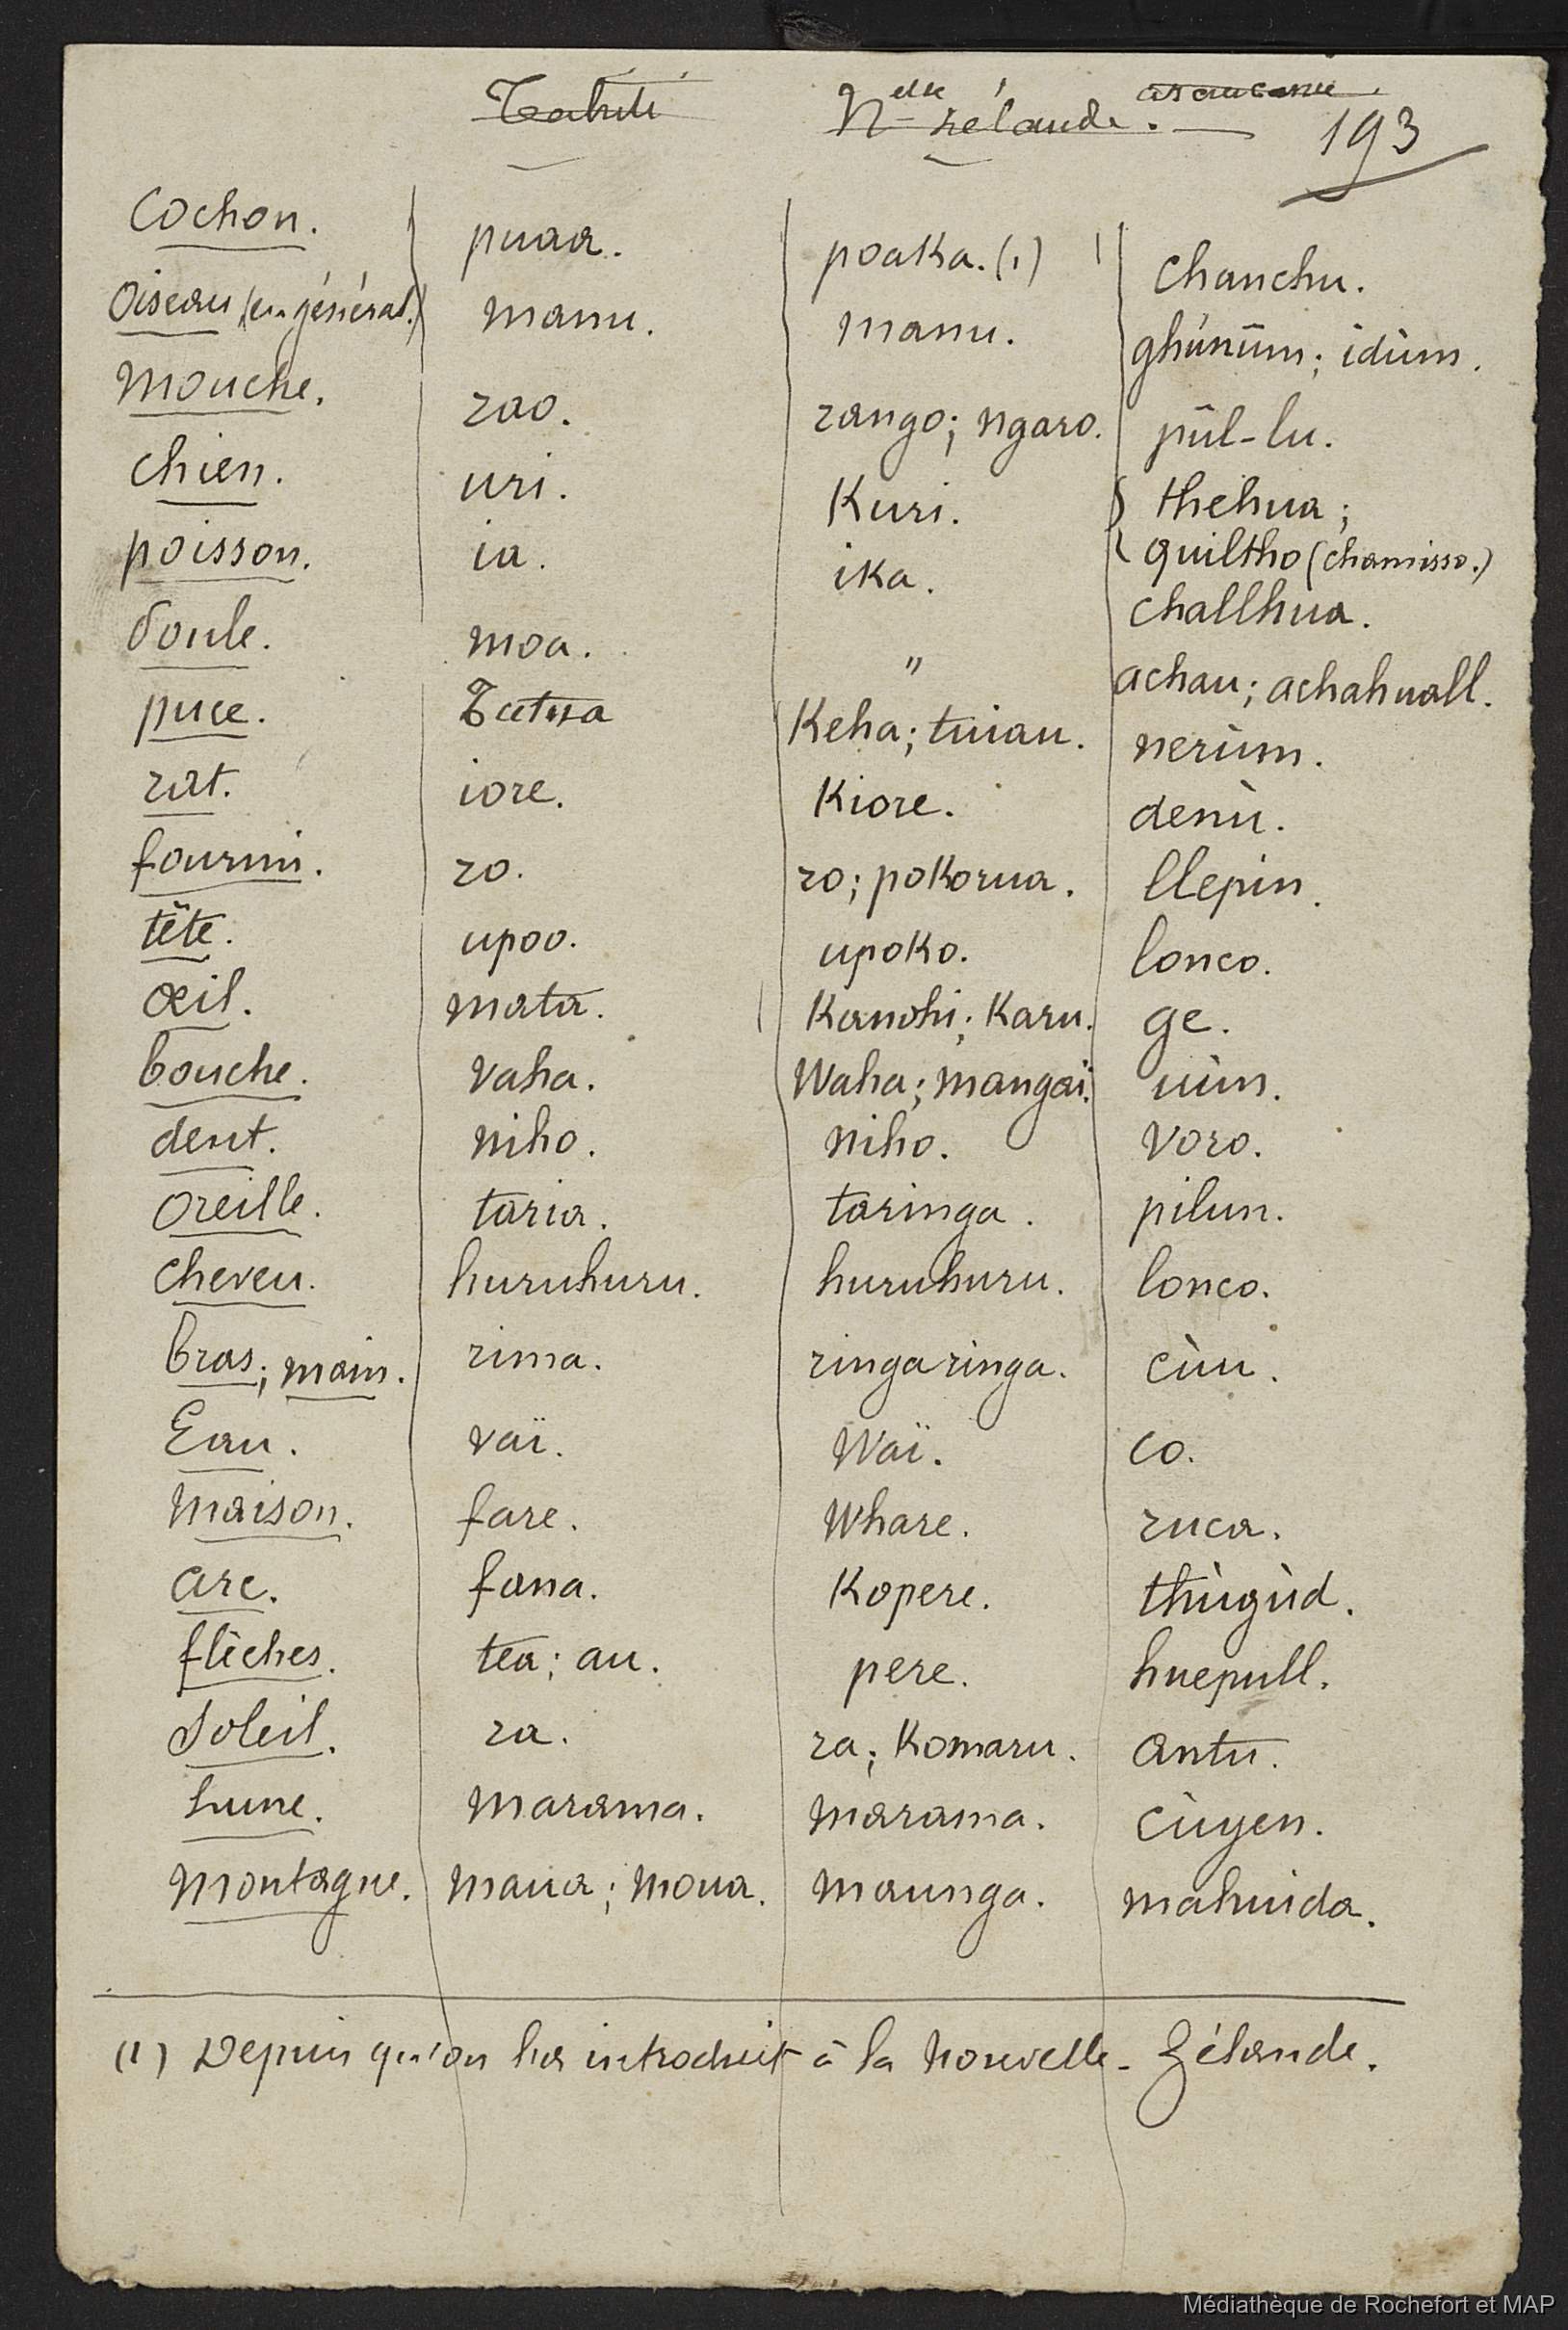 Tahiti Nelle Zélande. araucanie.
193
Cochon. puaa. poaka. (1) Chanchu.
Oiseau (en général.) manu. manu. ghúnüm; idùm.
mouche. rao. rango; ngaro. pûl-lu.
chien. uri. Kuri. thehua;
quiltho (chamisso.)
poisson. ia. ika. challhua.
Poule. moa. " achau; achahuall.
puce. Tutua Keha; tuiau. nerùm.
rat. iore. Kiore. denù.
fourmi. ro. ro; pokorua. llepin.
tête. upoo. upoko. lonco.
œil. mata. Kanohi; Karu. ge.
bouche. vaha. Waha; mangaï. uùn.
dent. niho. niho. voro.
Oreille. taria. taringa. pilun.
cheveu. huruhuru. huruhuru. lonco.
bras; main. rima. ringaringa. cùu.
Eau. vaï. Waï. co.
maison. fare. Whare. ruca.
arc. fana. Kopere. thùgùd.
flèches. tea; au. pere. huepull.
Soleil. ra. ra; Komaru. antu.
Lune. marama. marama. cùyen.
montagne. maua; moua. maunga. mahuida.
(1) Depuis qu'on l'a introduit à la Nouvelle-Zélande.
Médiathèque de Rochefort et MAP